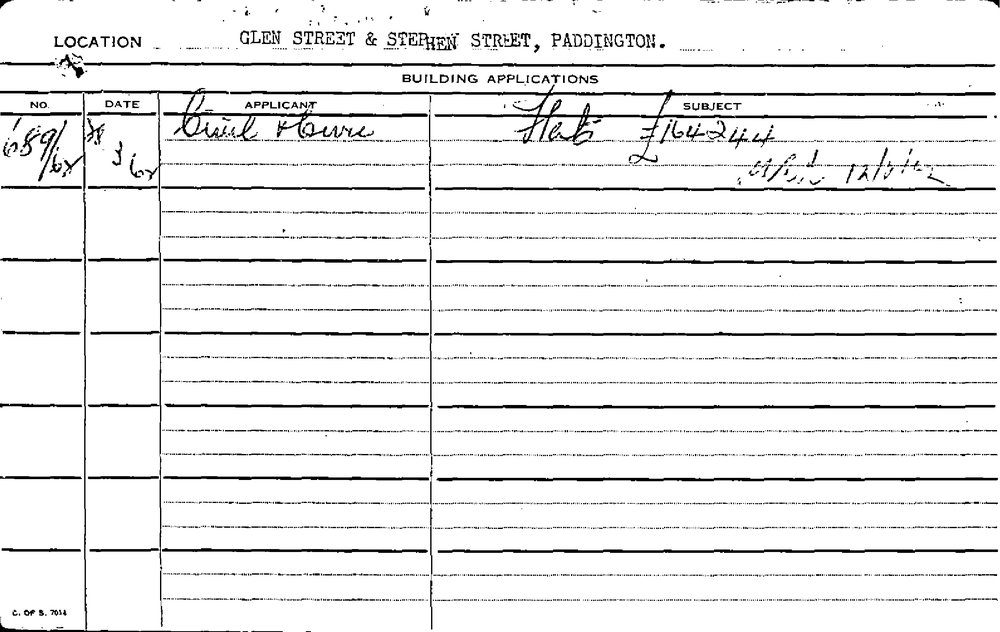 LOCATION GLEN STREET & STEPHEN STREET, PADDINGTON.
BUILDING APPLICATIONS
NO. DATE APPLICANT SUBJECT
689/62 3 62 Civil & Civic Flats £164244
12/6/62
C. OF S. 7014